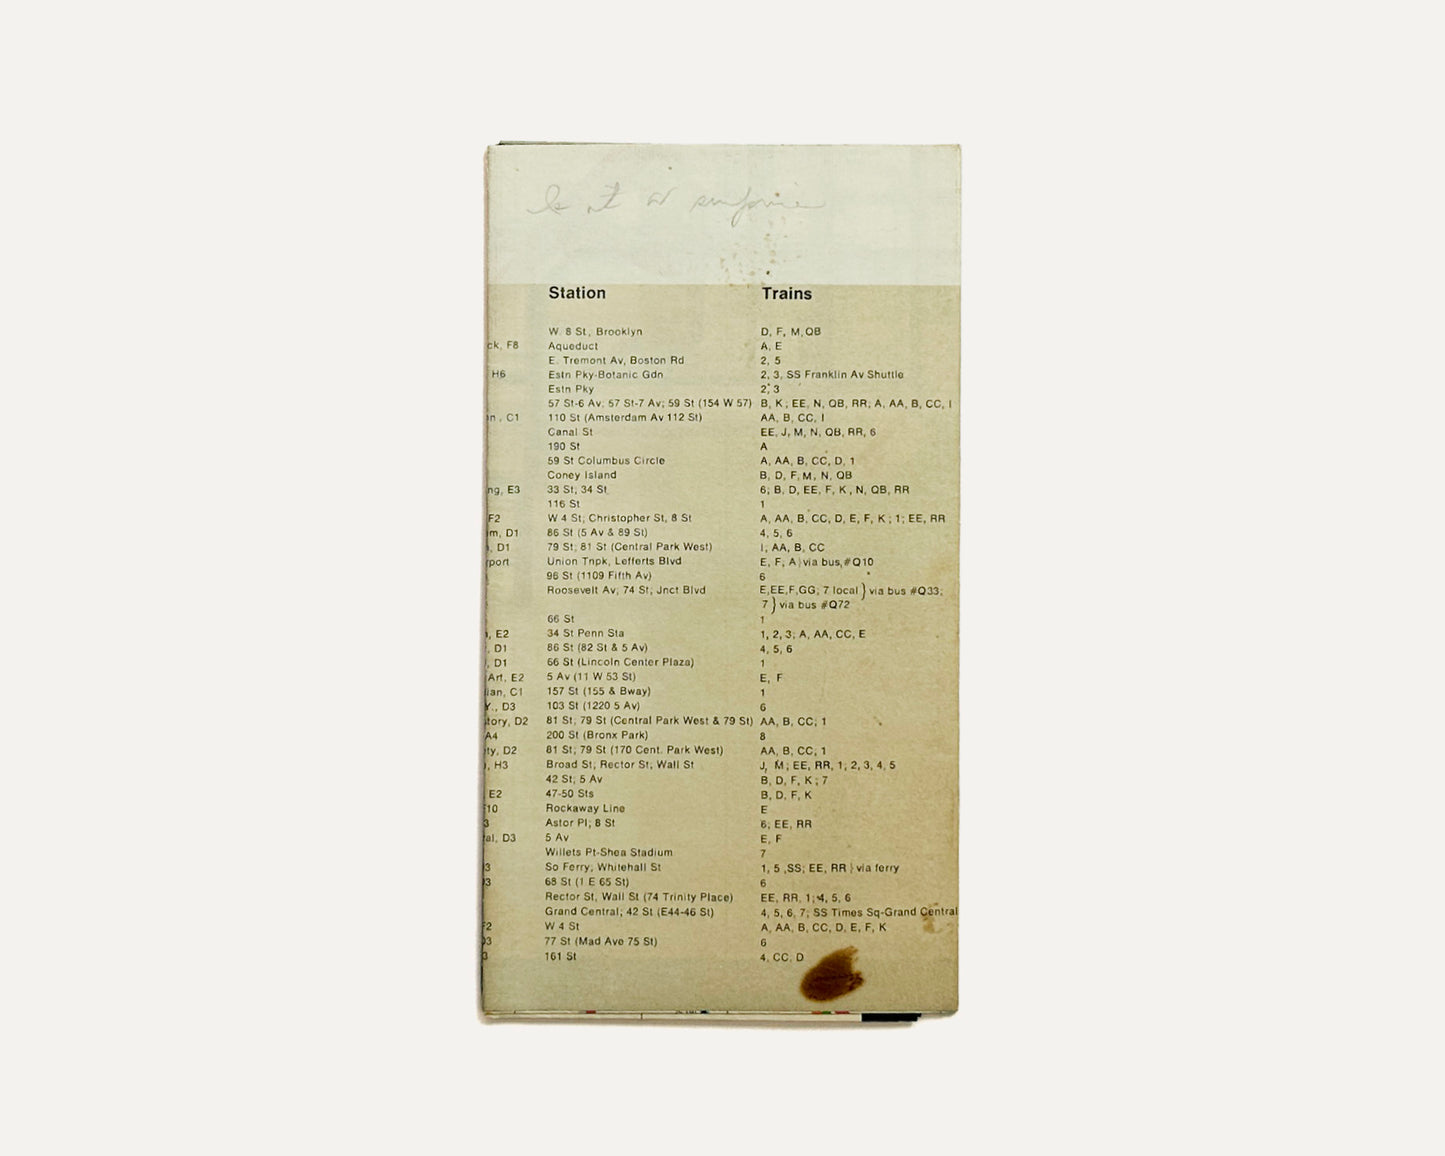 Station Trains
W. 8 St, Brooklyn D, F, M, QB
ck, F8 Aqueduct A, E
E. Tremont Av, Boston Rd 2, 5
H6 Estn Pky-Botanic Gdn 2, 3, SS Franklin Av Shuttle
Estn Pky 2, 3
57 St-6 Av; 57 St-7 Av; 59 St (154 W 57) B, K; EE, N, QB, RR; A, AA, B, CC, I
n, C1 110 St (Amsterdam Av 112 St) AA, B, CC, I
Canal St EE, J, M, N, QB, RR, 6
190 St A
59 St Columbus Circle A, AA, B, CC, D, 1
Coney Island B, D, F, M, N, QB
ng, E3 33 St; 34 St 6; B, D, EE, F, K, N, QB, RR
116 St 1
F2 W 4 St; Christopher St, 8 St A, AA, B, CC, D, E, F, K; 1; EE, RR
m, D1 86 St (5 Av & 89 St) 4, 5, 6
, D1 79 St; 81 St (Central Park West) I; AA, B, CC
rport Union Tnpk, Lefferts Blvd E, F, A } via bus, #Q10
96 St (1109 Fifth Av) 6
Roosevelt Av; 74 St; Jnct Blvd E,EE,F,GG; 7 local } via bus #Q33;
7 } via bus #Q72
66 St 1
, E2 34 St Penn Sta 1, 2, 3; A, AA, CC, E
, D1 86 St (82 St & 5 Av) 4, 5, 6
, D1 66 St (Lincoln Center Plaza) 1
Art, E2 5 Av (11 W 53 St) E, F
ian, C1 157 St (155 & Bway) 1
Y., D3 103 St (1220 5 Av) 6
tory, D2 81 St; 79 St (Central Park West & 79 St) AA, B, CC; 1
A4 200 St (Bronx Park) 8
ty, D2 81 St; 79 St (170 Cent. Park West) AA, B, CC; 1
, H3 Broad St; Rector St; Wall St J, M; EE, RR, 1; 2, 3, 4, 5
42 St; 5 Av B, D, F, K; 7
E2 47-50 Sts B, D, F, K
F10 Rockaway Line E
3 Astor Pl; 8 St 6; EE, RR
al, D3 5 Av E, F
Willets Pt-Shea Stadium 7
3 So Ferry; Whitehall St 1, 5 ,SS; EE, RR } via ferry
3 68 St (1 E 65 St) 6
Rector St, Wall St (74 Trinity Place) EE, RR, 1; 4, 5, 6
Grand Central; 42 St (E44-46 St) 4, 5, 6, 7; SS Times Sq-Grand Central
F2 W 4 St A, AA, B, CC, D, E, F, K
3 77 St (Mad Ave 75 St) 6
3 161 St 4, CC, D